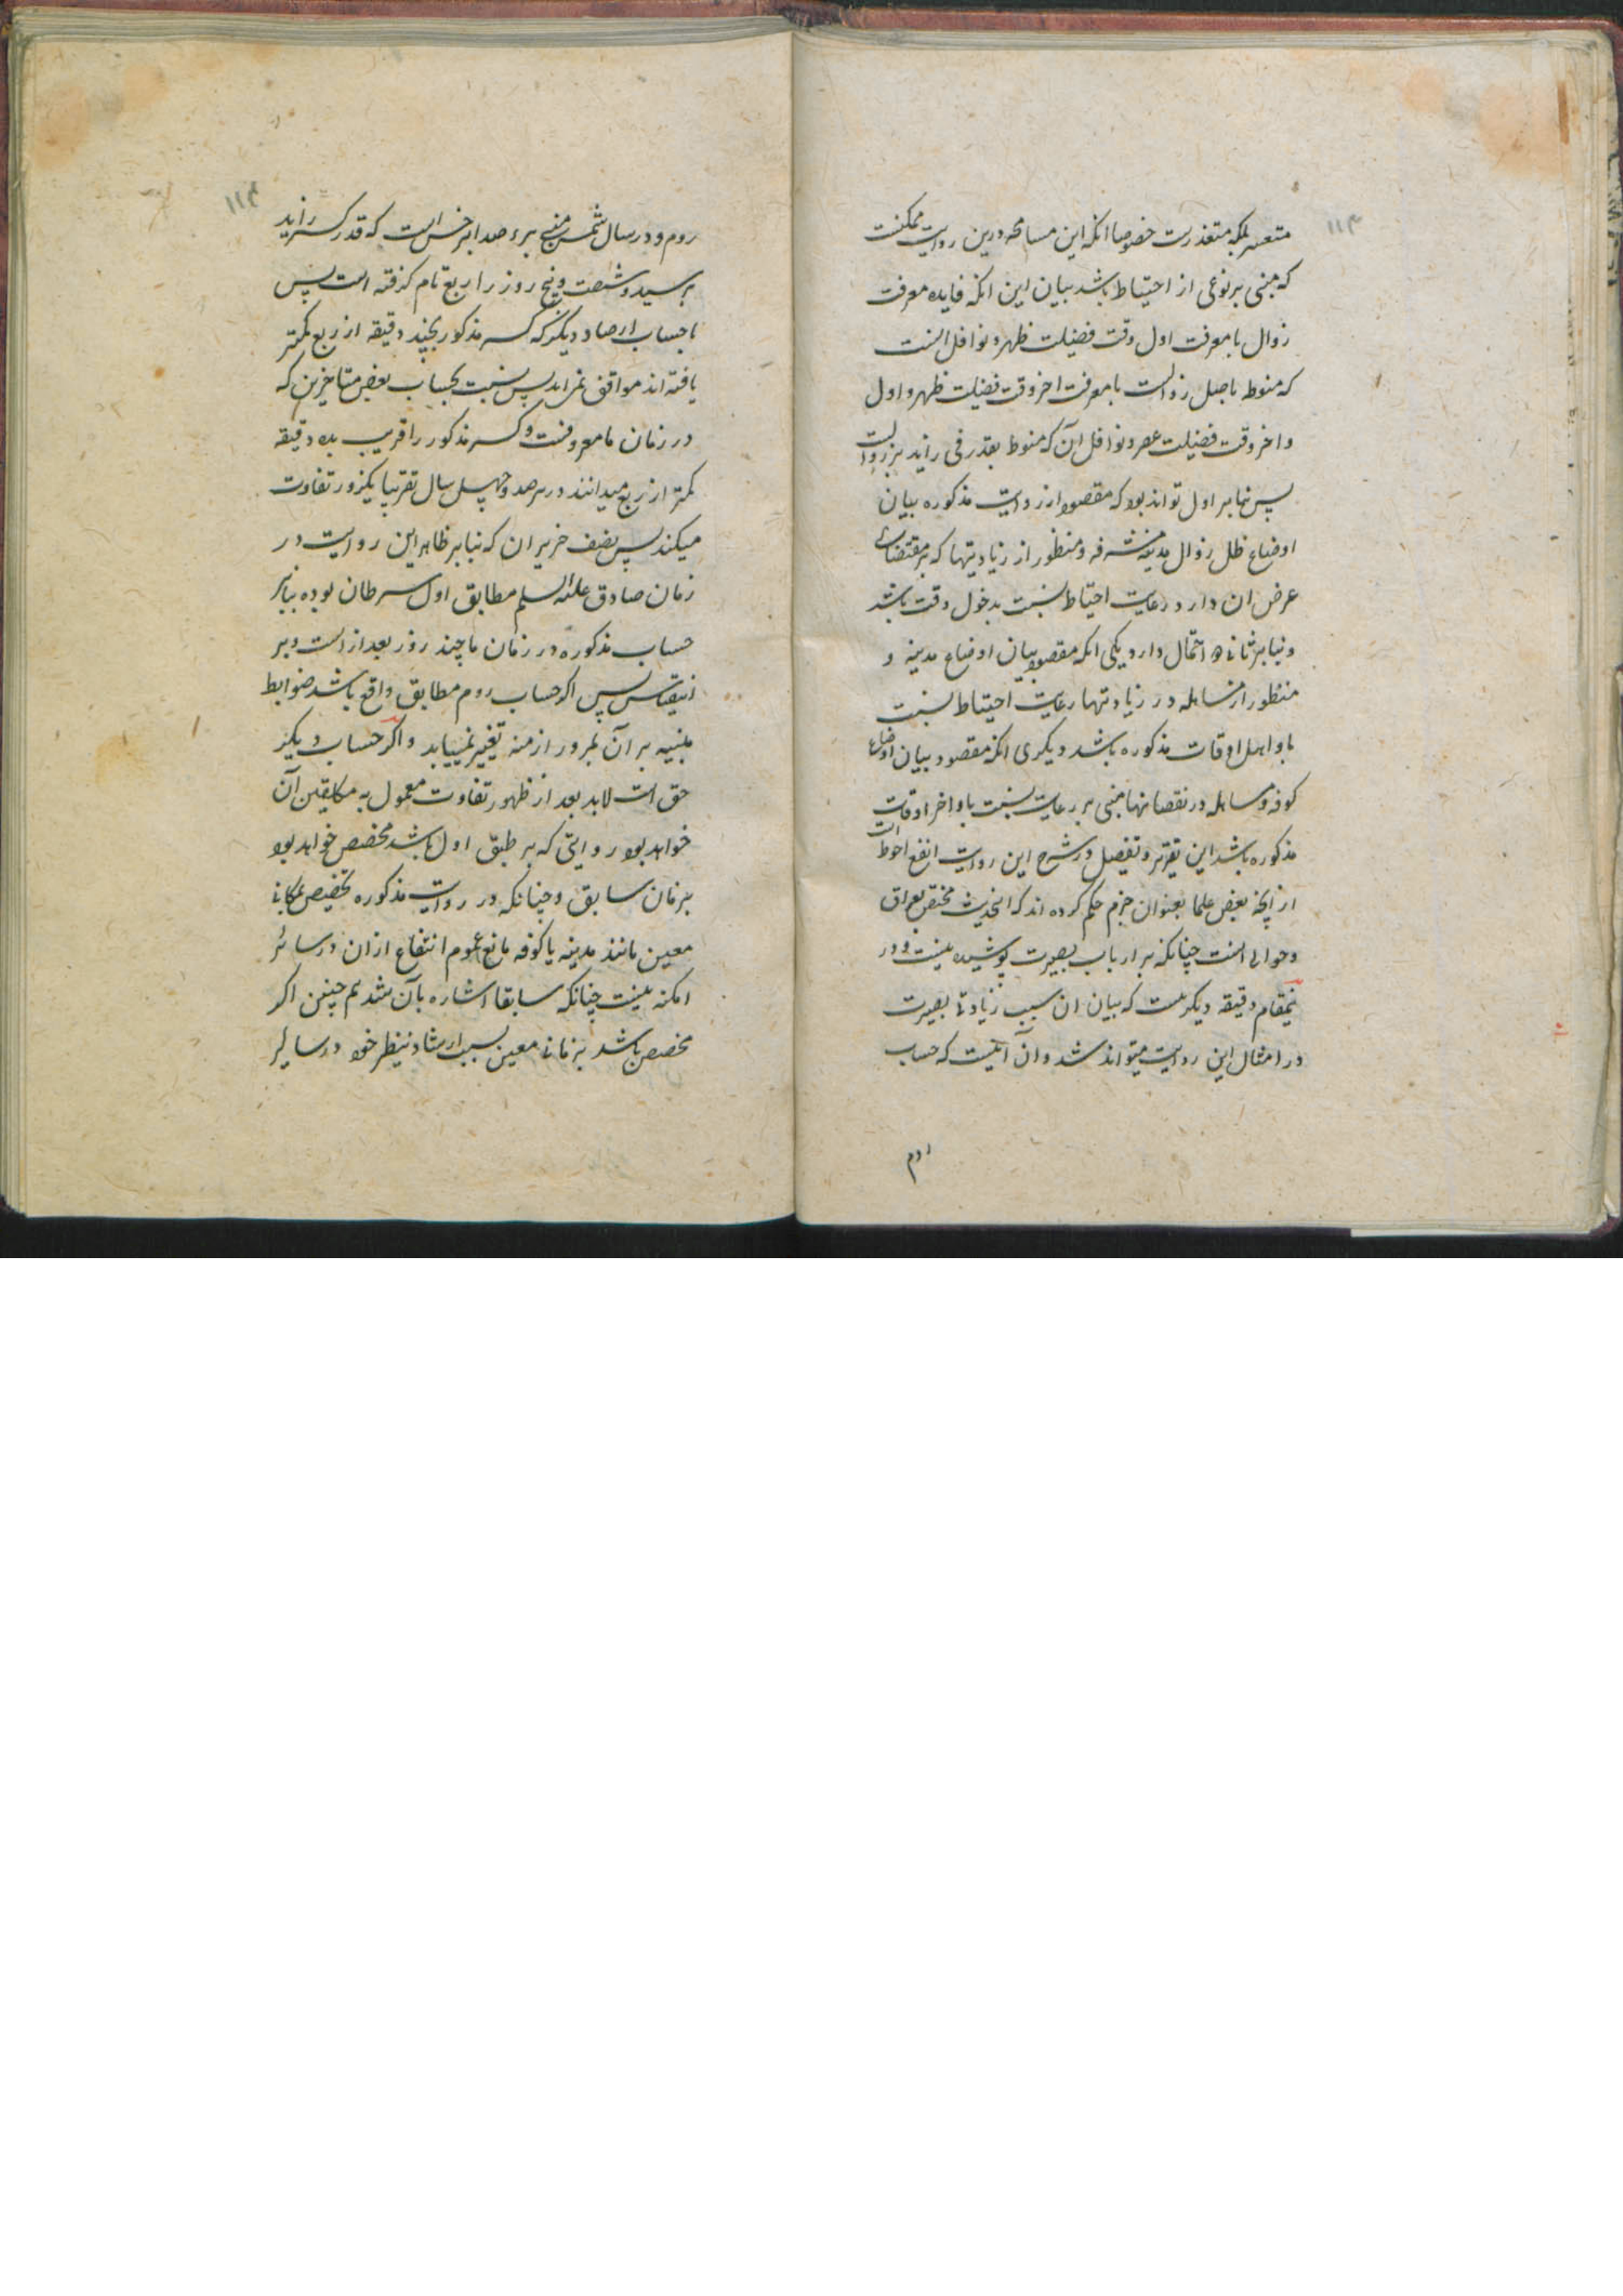 ۱۱۳
متعسر بلکه متعذرست خصوصا انکه این مسامحه درین روایت ممکنست
که مبنی بر نوعی از احتیاط باشد بیان این انکه فایده معرفت
زوال یا معرفت اول وقت فضیلت ظهر و نوافل انست
که منوط باصل زوالست یا معرفت اخر وقت فضیلت ظهر و اول
و اخر وقت فضیلت عصر و نوافل آن که منوط بقدر فی زاید بر زوالست
پس بنابر اول تواند بود که مقصود از روایت مذکوره بیان
اوضاع ظل زوال مدینه مشرفه و منظور از زیادتیها که بر مقتضای
عرض ان دارد رعایت احتیاط نسبت بدخول وقت باشد
و بنابر ثانی دو احتمال دارد یکی انکه مقصود بیان اوضاع مدینه و
منظور از مساهله در زیادتیها رعایت احتیاط نسبت
باوایل اوقات مذکوره باشد دیگری انکه مقصود بیان اوضاع
کوفه و مساهله در نقصانها مبنی بر رعایت نسبت باواخر اوقات
مذکوره باشد این تقریر و تفصیل در شرح این روایت انفع احوط است
از انچه بعض علما بعنوان جزم حکم کرده اند که انحدیث مختص بعراق
و حوالی انست چنانکه بر ارباب بصیرت پوشیده نیست و در
ینمقام دقیقه دیگر هست که بیان ان سبب زیادتی بصیرت
در امثال این روایت میتواند شد و آن آنست که حساب
روم
۱۱۴
روم و در سال شمسی مبنی بر رصد ابرخس است که قدر کسر زاید
بر سیصد و شصت و پنج روز را ربع تام گرفته است پس
با حساب ارصاد دیگر که کسر مذکور بچند دقیقه از ربع کمتر
یافته اند موافق نمی اید پس نسبت بحساب بعض متاخرین که
در زمان ما معروفست و کسر مذکور را قریب بده دقیقه
کمتر از ربع میدانند در هر صد و چهل سال تقریبا یکروز تفاوت
میکند پس نصف حزیران که بنابر ظاهر این روایت در
زمان صادق علیه السلم مطابق اول سرطان بوده بنابر
حساب مذکوره در زمان ما چند روز بعد از است و بر
اینقیاس پس اگر حساب روم مطابق واقع باشد ضوابط
مبنیه بر آن بمرور ازمنه تغییر نمییابد و اگر حساب دیگر
حق است لابد بعد از ظهور تفاوت معمول به مکلفین آن
خواهد بود روایتی که بر طبق اول باشد مخصص خواهد بود
بزمان سابق و چنانکه در روایت مذکوره تخصیص بمکانی
معین مانند مدینه یا کوفه مانع عموم انتفاع ازان در سائر
امکنه نیست چنانکه سابقا اشاره بآن شد همچنین اگر
مخصص باشد بزمانی معین بسبب ارشاد بنظر خود در سایر